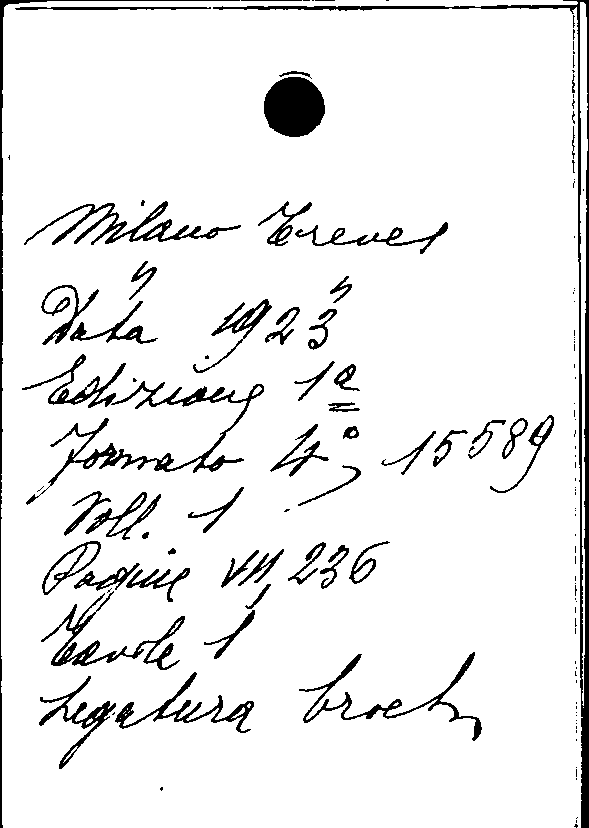 Milano Treves
" "
Data 1923
Edizione 1a
Formato 4°, 15589
Voll. 1
Pagine VII, 236
Tavole 1
Legatura broch